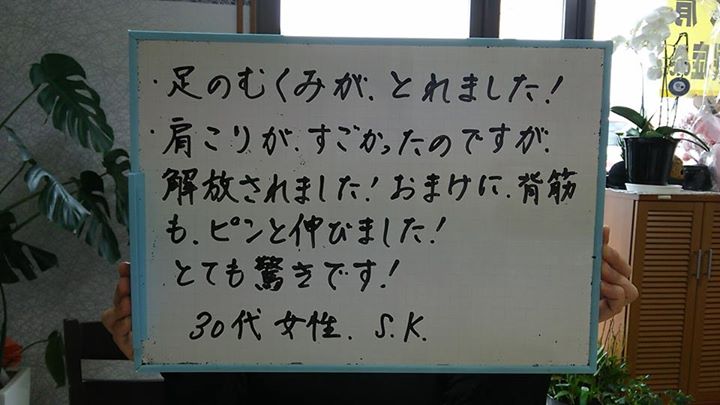 ・足のむくみが、とれました!
・肩こりが、すごかったのですが、
解放されました!おまけに、背筋
も、ピンと伸びました!
とても驚きです!
30代 女性. S.K.